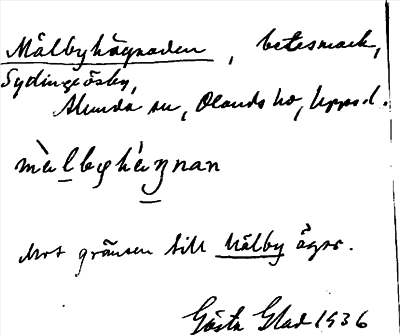 Mälbyhägnaden, betesmark,
Sydingeösby,
Alunda sn, Olands hd, Uppsal.
mä̀lbyhä́ŋnan
Mot gränsen till Mälby ägor.
Gösta Glad 1936